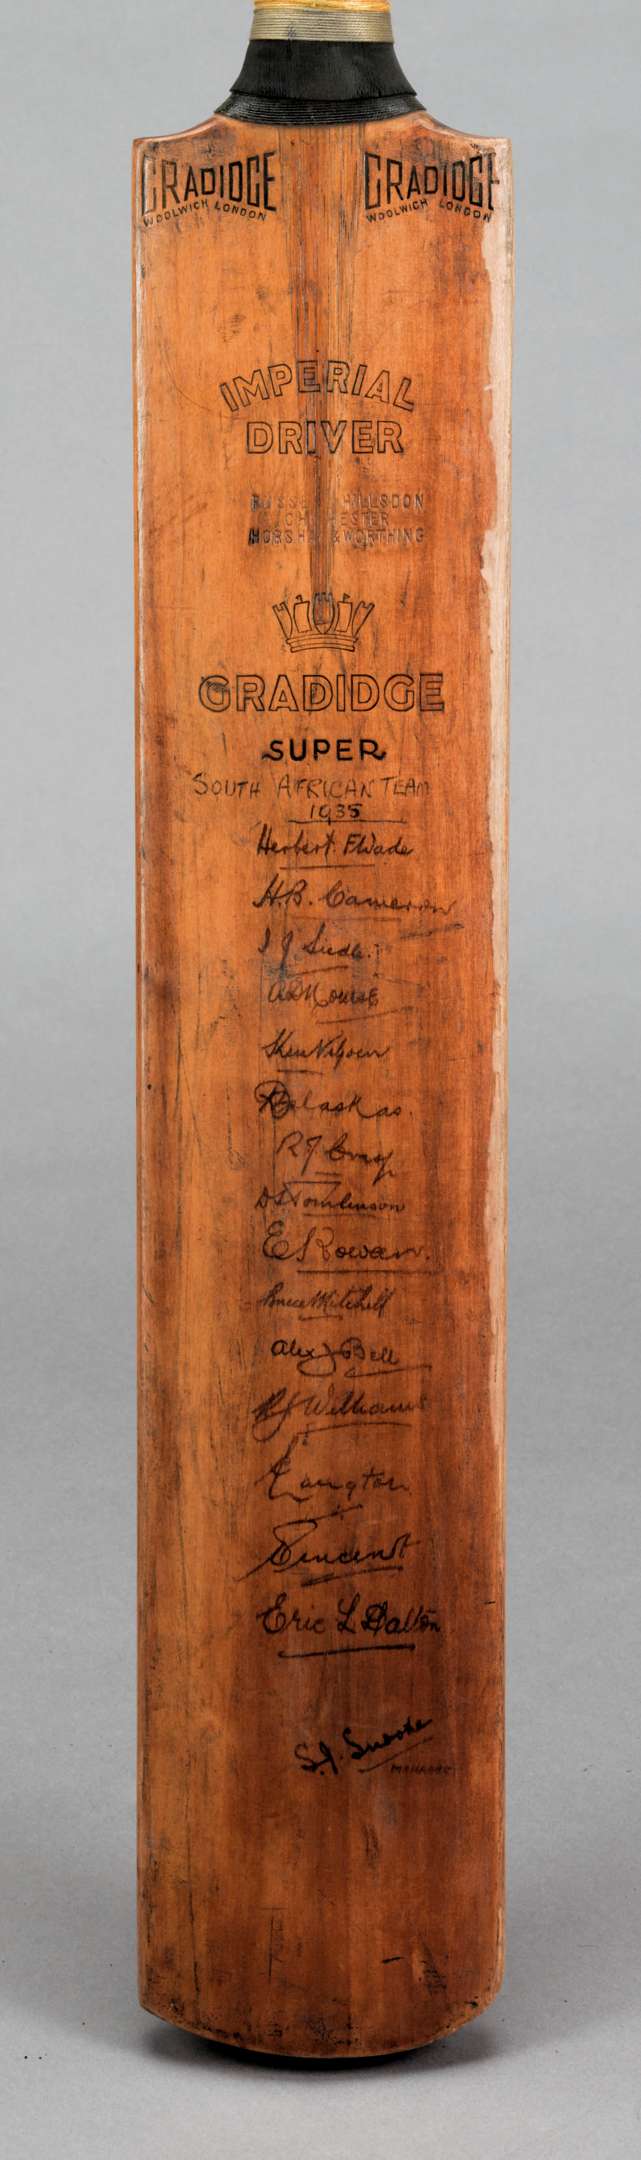 GRADIDGE
WOOLWICH LONDON
GRADIDGE
WOOLWICH LONDON
IMPERIAL
DRIVER
RUSSELL HILLSDON
CHICHESTER
HORSHAM & WORTHING
GRADIDGE
SUPER
SOUTH AFRICAN TEAM
1935
Herbert F Wade
H.B. Cameron
I J Siedle
A D Nourse
Ken Viljoen
Balaskas.
R J Crisp
D S Tomlinson
E Rowan.
Bruce Mitchell
Alex J Bell
R J Williams
Langton
Vincent
Eric L Dalton
S.J. Snooke
MANAGER